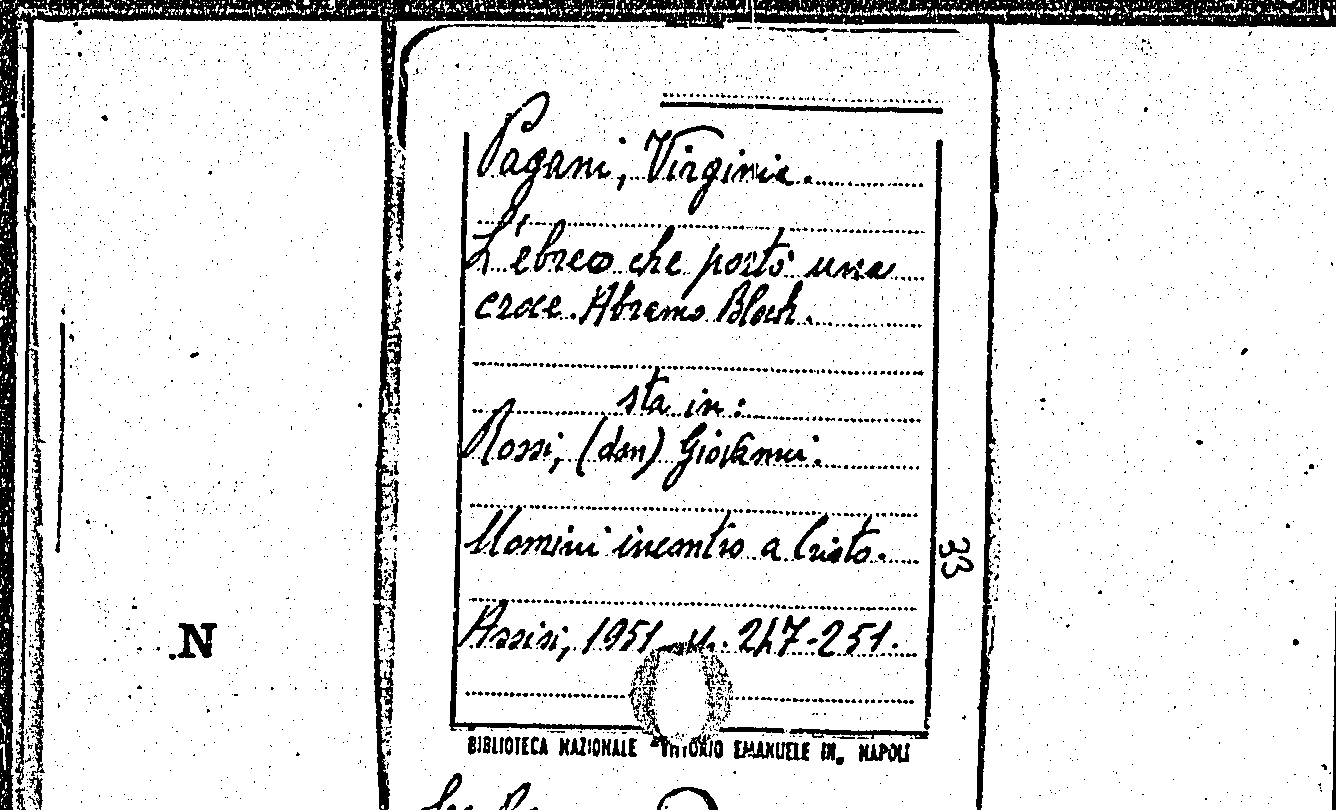 Pagani, Virginia.
L'ebreo che portò una
croce. Abramo Bloch.
sta in:
Rossi, (don) Giovanni.
Uomini incontro a Cristo.
33
Assisi, 1951. 247-251.
N
BIBLIOTECA NAZIONALE "VITTORIO EMANUELE III„ NAPOLI